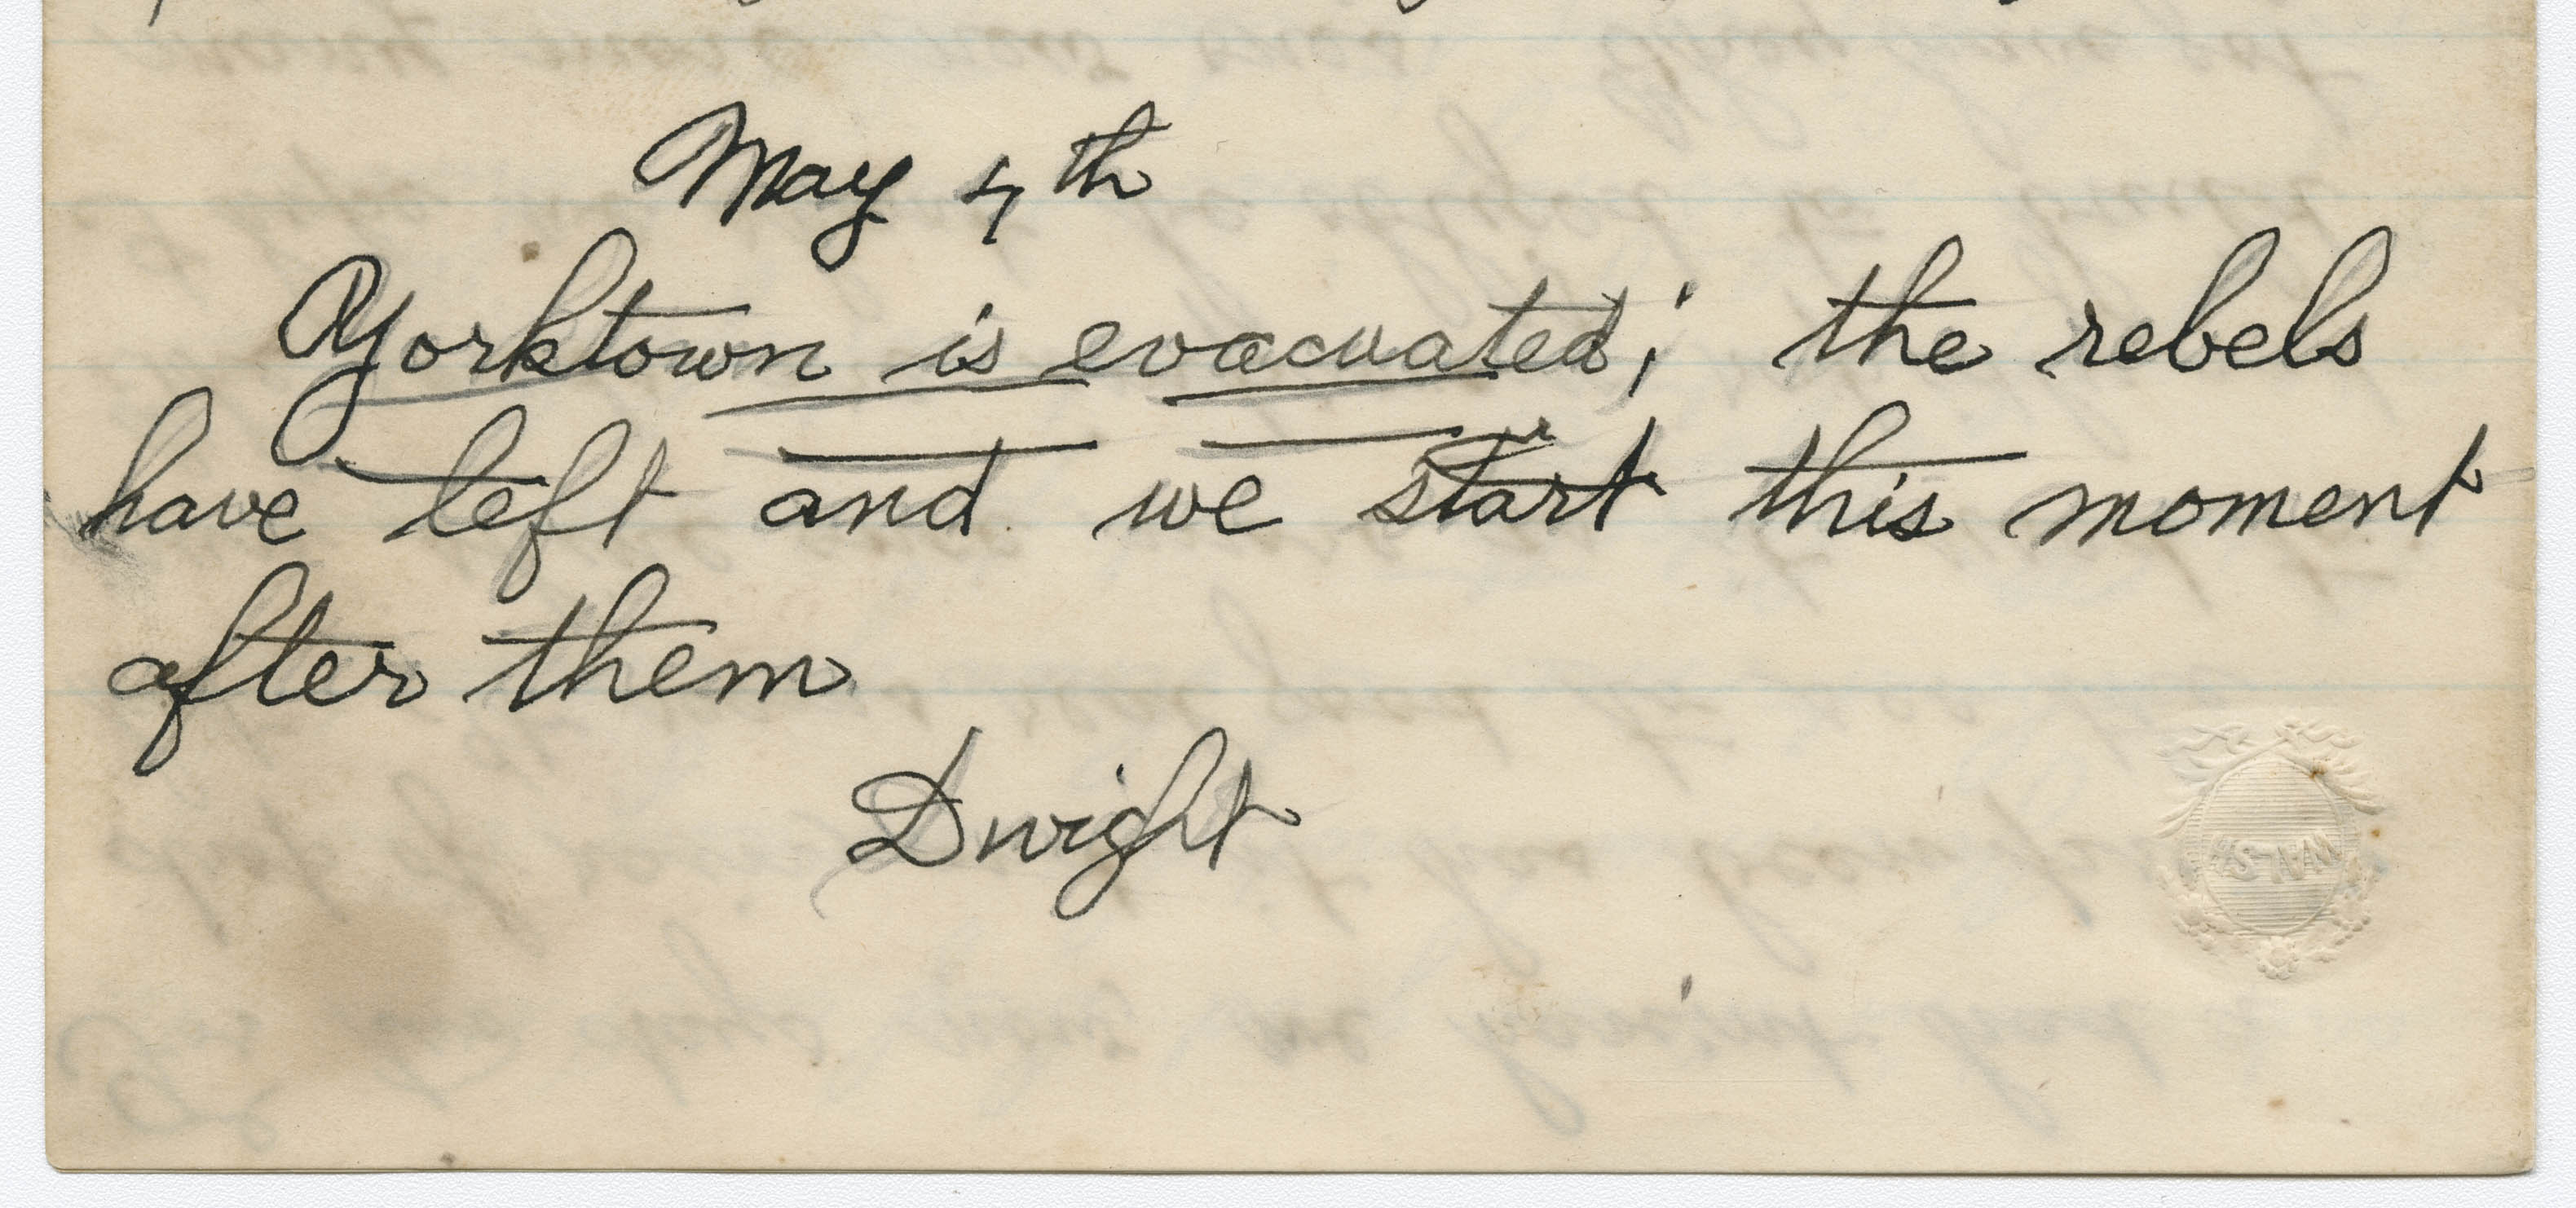 May 4th
Yorktown is evacuated; the rebels
have left and we start this moment
after them
Dwight